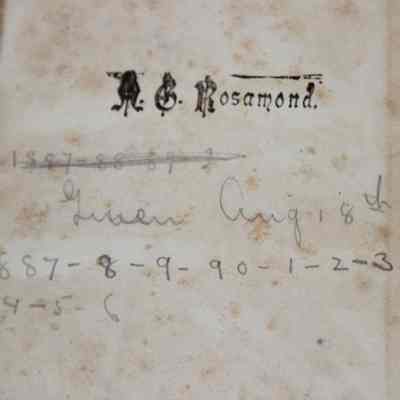 A. G. Rosamond.
1887-88-89-3
Given Aug 18th
887-8-9-90-1-2-3
4-5-6